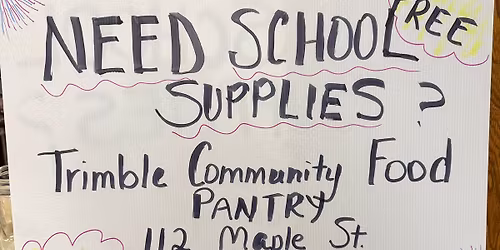 FREE
NEED SCHOOL
SUPPLIES ?
Trimble Community Food
PANTRY
112 Maple St.